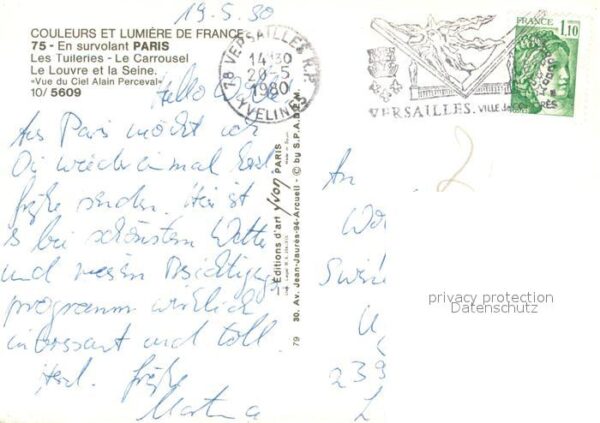 19.5.80
COULEURS ET LUMIÈRE DE FRANCE
75 - En survolant PARIS
Les Tuileries - Le Carrousel
Le Louvre et la Seine.
«Vue du Ciel Alain Perceval»
10/ 5609
78 VERSAILLES R.P.
14H30
20-5
1980
YVELINES
VERSAILLES. VILLE de CONGRÈS
FRANCE
1,10
Hallo
Aus Paris möcht ich
Dir wieder einmal
Grüße senden. Hier ist
es bei schönstem Wetter
und
programm wirklich
interessant und toll.
Herzl. Grüße
Martina
Éditions d'art yvon PARIS
30, Av. Jean-Jaurès-94-Arcueil - © by S.P.A.D.E.M.
79
An
239
2
privacy protection
Datenschutz